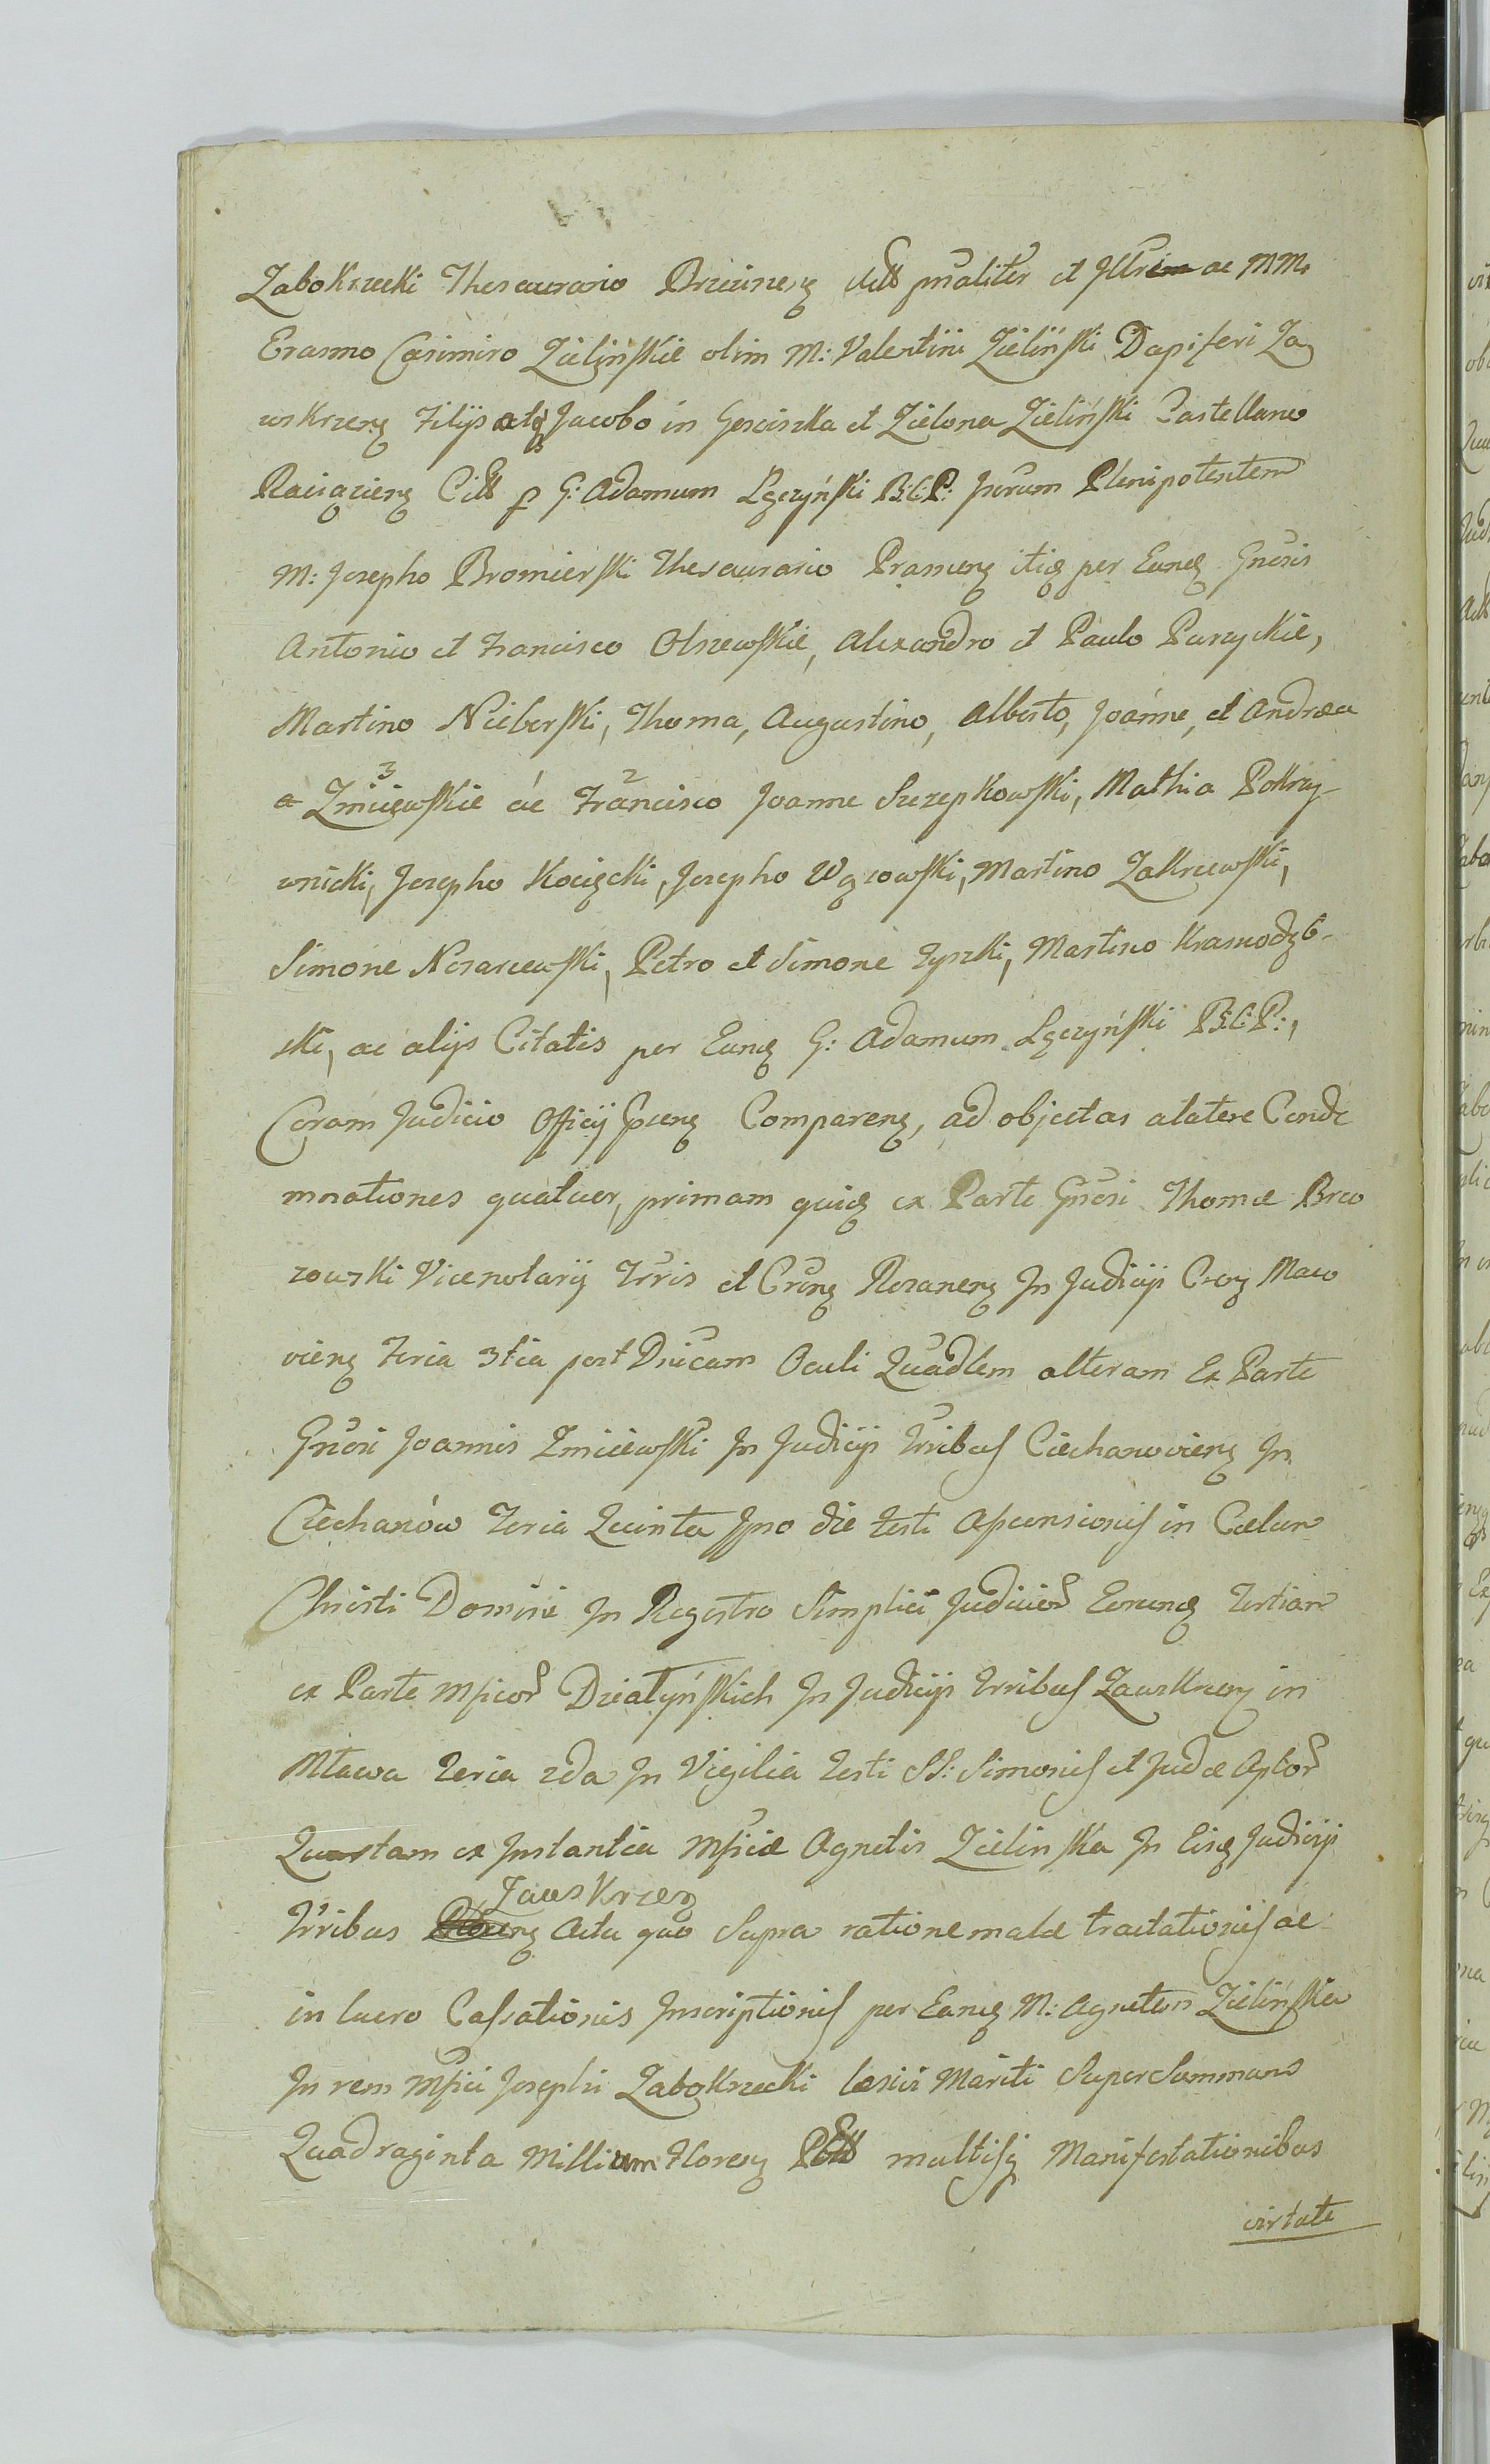 Zabokrzecki Thesaurario Brzezinens Citt pnaliter et Illri ac MM.
Erasmo Casimiro Zielinskie olim M: Valentini Zieliński Dapiferi Za
wskrzens Filijs atq Jacobo in Gosciszka et Zielona Zieliński Castellano
Raciąziens Citt p G: Adamum Lęczyński B:C:P: Jurum Plenipotentem
M: Josepho Bromierski Thesaurario Prasnens itid per Eund Gnosis
Antonio et Francisco Olszewskie, Alexandro et Paulo Purzyckie,
Martino Nieborski, Thoma, Augustino, Alberto, Joanne, et Andrea
a Zmiiewskie ac Francisco Joanne Szczepkowski, Mathia Pokrzy-
wnicki, Josepho Kocięcki, Josepho Wązowski, Martino Zakrzewski,
Simone Nosarzewski, Petro et Simone Tyszki, Martino Krasnodęb-
ski, ac alijs Citatis per Eund G: Adamum Lęczyński B:C:P:,
Coram Judicio Officij Comparens, ad objectas alatere Conde
mnationes quatuor, primam quid ex Parte Gnosi Thomæ Brzo
zowski Vicenotarij Trris et Crens Rozanens In Judicijs Crens Maco
viens Feria 3tia post Dnicam Oculi Quadlem alteram Ex Parte
Gnosi Joannis Zmiiewski In Judicijs Trribus Ciechanoviens In
Ciechanów Feria Quinta Ipso die Festi Ascensionis in Cælum
Christi Domini In Registro Simplici Judicior Eorund Tertiam
ex Parte Mficor Działyńskich In Judicijs Trribus Zawskrzens in
Mława Feria 2da In Vigilia Festi SS: Simonis et Judæ Aplor
Quartam ex Instantia Mficæ Agnetis Zielinska In Eisd Judicijs
Zawskrzens
Trribus Actu quo Supra ratione malæ tractationis ac
in lucro Cassationis Inscriptionis per Eand M: Agnetem Zielińska
In rem Mfici Josephi Zabokrzecki Mariti Super Summam
Quadraginta Millium Florens multisq Manifestationibus
virtute